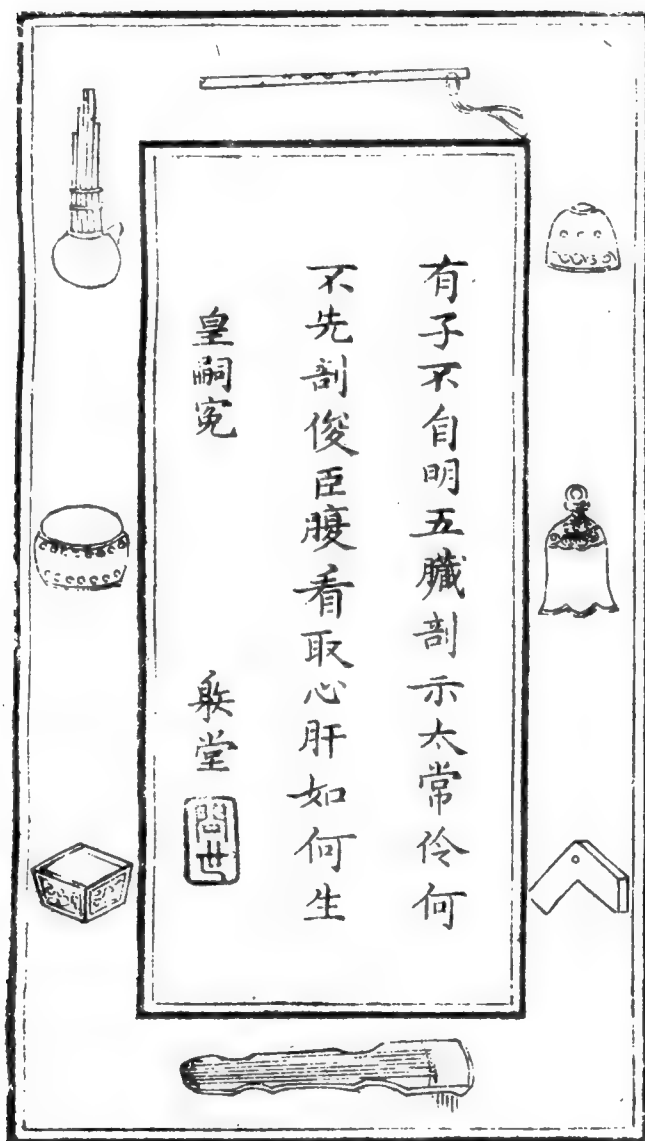 有子不自明五臟剖示太常伶何
不先剖俊臣腹看取心肝如何生
皇嗣冤
堂